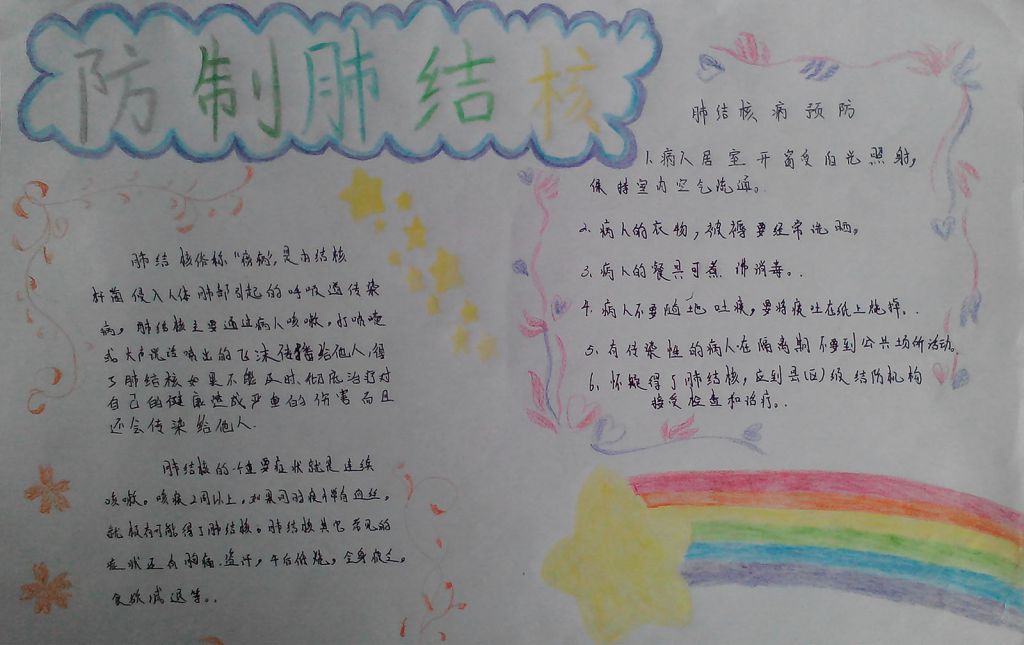 防制肺结核
肺结核俗称"痨病",是由结核
杆菌侵入人体肺部引起的呼吸道传染
病,肺结核主要通过病人咳嗽,打喷嚏
或大声说话喷出的飞沫传播给他人,得
了肺结核如果不能及时,彻底治疗对
自己的健康造成严重的伤害而且
还会传染给他人.
肺结核的一个重要症状就是连续
咳嗽。咳痰2周以上,如果同时痰中带有血丝,
就极有可能得了肺结核。肺结核其它常见的
症状还有胸痛.盗汗,午后低烧,全身疲乏,
食欲减退等。.
肺结核病预防
1.病人居室开窗受日光照射,
保持室内空气流通。
2.病人的衣物,被褥要经常洗晒。
3.病人的餐具可煮沸消毒。.
4.病人不要随地吐痰,要将痰吐在纸上烧掉。.
5.有传染性的病人在隔离期不要到公共场所活动。
6.怀疑得了肺结核,应到县(区)级结防机构
接受检查和治疗。.